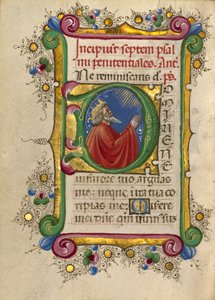 Incipiunt septem psal
mi penitentiales. Ant.
Ne reminiscaris d. ps.
DOMINE NE
in furore tuo arguas
me: neque in ira tua co
ripias me. Misere
mei d